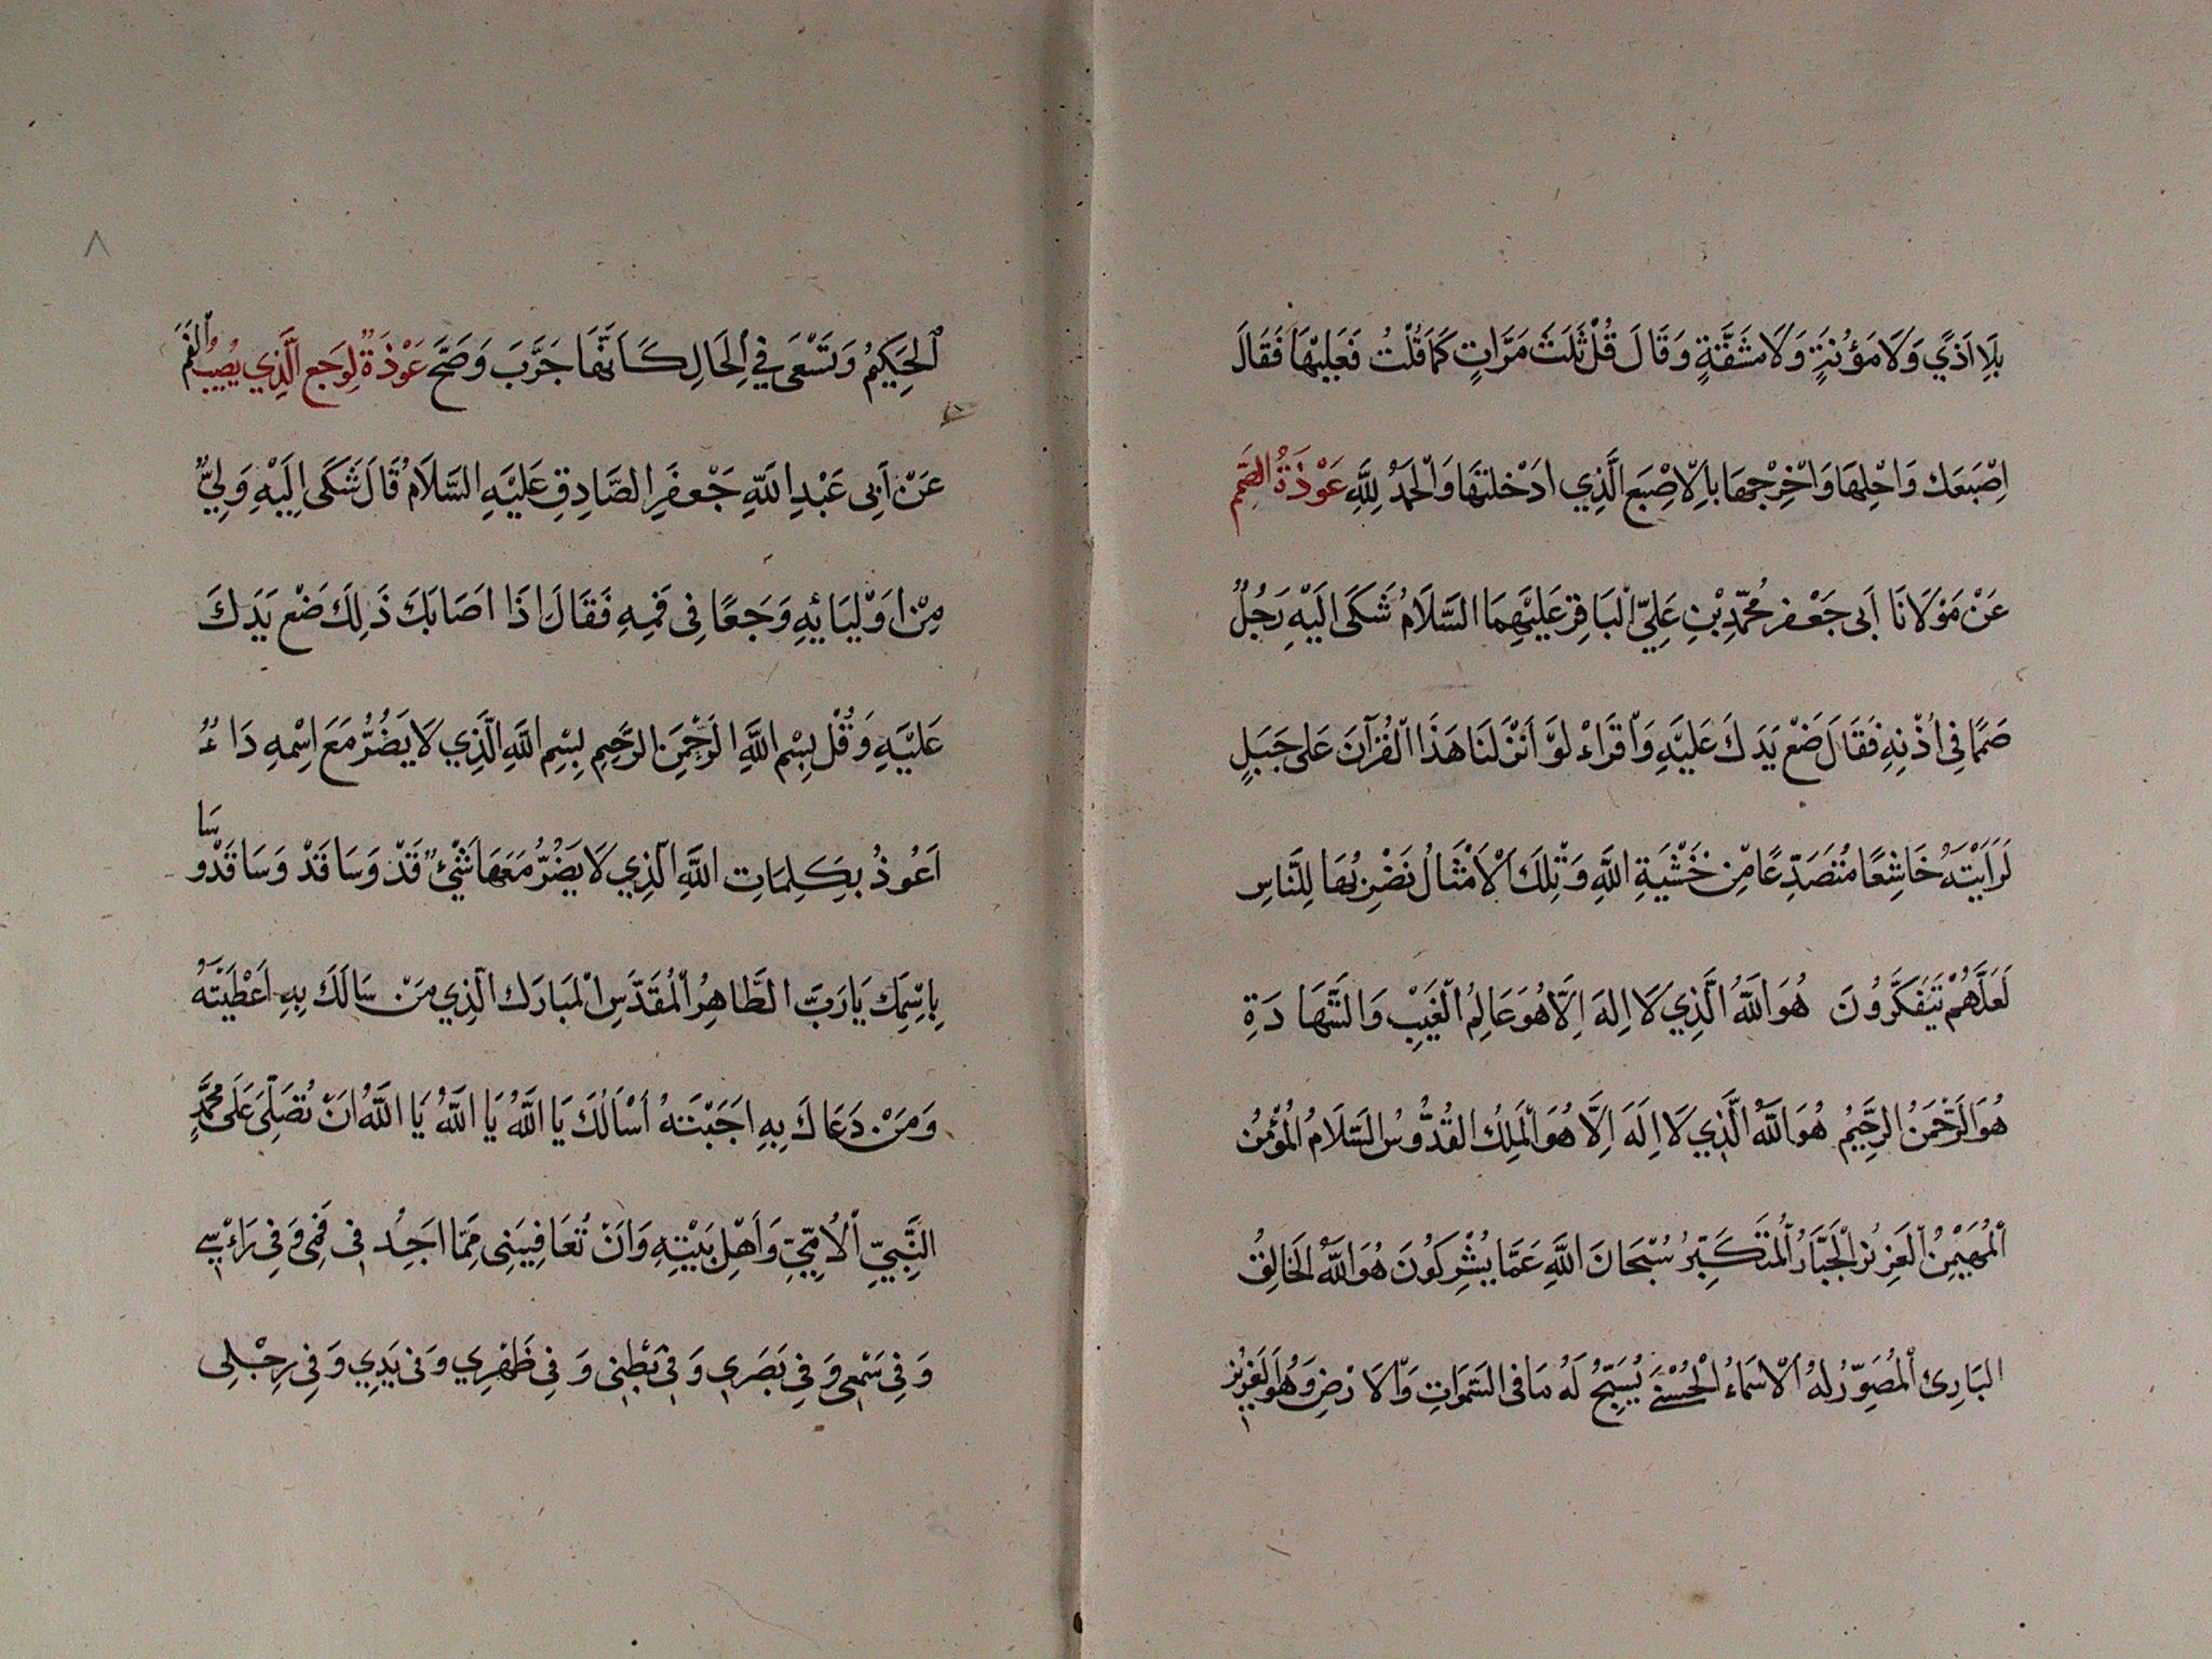 بِلَا اَذيً وَلَا مَؤُنَةٍ وَلَا مَشَقَّةٍ وَقَالَ قُلْ ثَلٰثَ مَرَّاتٍ كَمَا قُلْتُ فَعَلِيهَا فَقَالَ
اِصْبَعَكَ وَاحْلِهَا وَاَخْرِجْهَا بِاَلِاصْبَعِ الَّذِي ادْخَلتَهَا وَالْحَمْدُ لِلَّهِ عَوْذَةُ الصَّمَمِ
عَنْ مَوْلَانَا اَبى جَعْفر مُحَمَّدِ بْنِ عَلِيّ الْبَاقِرِ عَلَيْهِمَا السَّلَامُ شَكَى اِلَيْهِ رَجُلٌ
صَمًّا فِى اُذْنِهِ فَقَالَ ضَعْ يَدَكَ عَلَيْهِ وَاقْرَاءْ لَوْ اَنْزَلنَا هَذَا الْقُرْآنَ عَلى جَبَلٍ
لَرَاَيْتَهُ خَاشِعًا مُتَصَدِّعًا مِّنْ خَشْيَةِ اللَّهِ وَتِلكَ الْاَمْثَالُ نَضْرِبُهَا لِلنَّاسِ
لَعَلَّهُمْ يَتَفَكَّرُونَ هُوَ اللَّهُ الَّذِي لَا اِلهَ اِلَّا هُوَ عَالِمُ الْغَيْبِ وَالشَّهَادَةِ
هُوَ الرَّحْمَنُ الرَّحِيْمُ هُوَ اللَّهُ الَّذِي لَا اِلَهَ اِلَّا هُوَ الْمَلِكُ القُدُّوسُ السَّلَامُ الْمُؤْمِنُ
الْمُهَيْمِنُ الْعَزِيزُ الْجَبَّارُ الْمُتَكَبِّرُ سُبْحَانَ اللَّهِ عَمَّا يُشْرِكُونَ هُوَ اللَّهُ الْخَالِقُ
البَارِئُ الْمُصَوِّرُ لَهُ الْاَسْمَاءُ الْحُسْنَے يُسَبِّحُ لَهُ مَا فى السَّمَوَاتِ وَالْاَرْضِ وَهُوَ الْعَزِيْز
الْحَكِيْمُ وَتَسْعَى فِي الْحَالِ كَاَنَّهَا جَرَّبَ وَصَحَّ عَوْذَةٌ لِوَجع الَّذِي يُصِيبُ الْفَمَ
عَنْ اَبِى عَبْدِ اللَّهِ جَعْفَرِ الصَّادِقِ عَلَيْهِ السَّلَامُ قَالَ شَكَى اِلَيْهِ وَلِيٌّ
مِنْ اَوْلِيَائِهِ وَجَعًا فِى فَمِهِ فَقَالَ اِذَا اَصَابَكَ ذَلِكَ ضَعْ يَدَكَ
عَلَيْهِ وَقُلْ بِسْمِ اللَّهِ الرَّحْمَنِ الرَّحِيمِ بِسْمِ اللَّهِ الَّذِي لَا يَضُرُّ مَعَ اِسْمِهِ دَاءٌ
اَعُوذُ بِكَلِمَاتِ اللَّهِ الَّذِي لَا يَضُرُّ مَعَهَا شَيْئٌ قَدْ وَسَا قَدْ وَسَا قَدْو سَا
بِاسْمِكَ يَارَبِّ الطَّاهِرُ الْمُقَدَّسِ الْمُبَارَكِ الَّذِي مَنْ سَالَكَ بِهِ اَعْطَيْتَهُ
وَمَنْ دَعَاكَ بِهِ اَجَبْتَهُ اَسْاَلُكَ يَا اللَّهُ يَا اللَّهُ يَا اللَّهُ اَنْ تُصَلِّيَ عَلَى مُحَمَّدٍ
النَّبِيِّ الْاُمِّيِّ وَاَهْلِ بَيْتِهِ وَاَنْ تُعَافِيَنِى مِمَّا اَجِدُ فِى فَمِى وَفِى رَاْسِے
وَفِى سَمْعِى وَفِى بَصَرِي وَفِى بَطْنِى وَفِى ظَهْرِي وَفى يَدِي وَفِى رِجْلِى